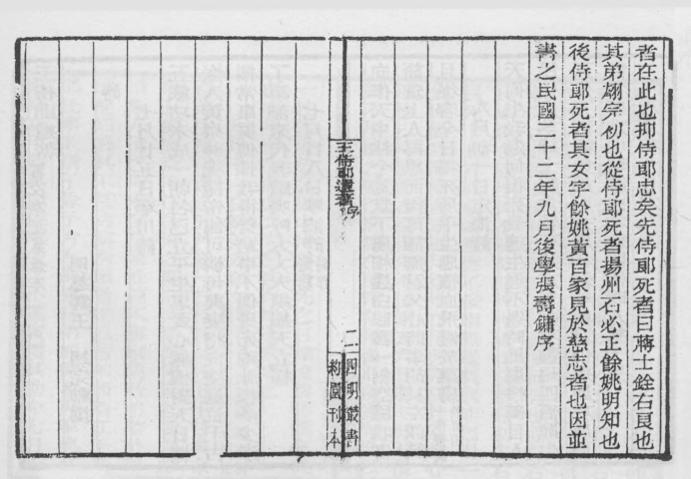 者在此也抑侍郎忠矣先侍郎死者曰蔣士銓右良也
其弟翊字初也從侍郎死者揚州石必正餘姚明知也
後侍郎死者其女字餘姚黃百家見於慈志者也因並
書之民國二十二年九月後學張壽鏞序
王侍郎遺著序
二
四明叢書
約園刊本